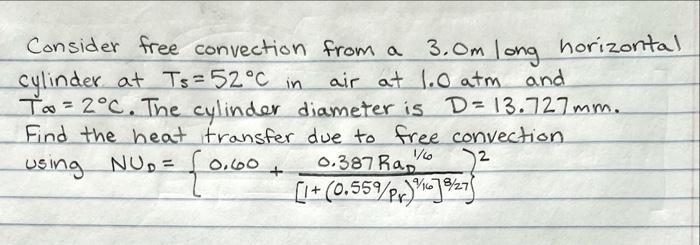 Consider free convection from a 3.0m long horizontal
cylinder at Ts=52°C in air at 1.0 atm and
T∞ = 2°C. The cylinder diameter is D= 13.727mm.
Find the heat transfer due to free convection
using NU_D = { 0.60 + 0.387 Ra_D^1/6 / [1+(0.559/Pr)^9/16]^8/27 }^2